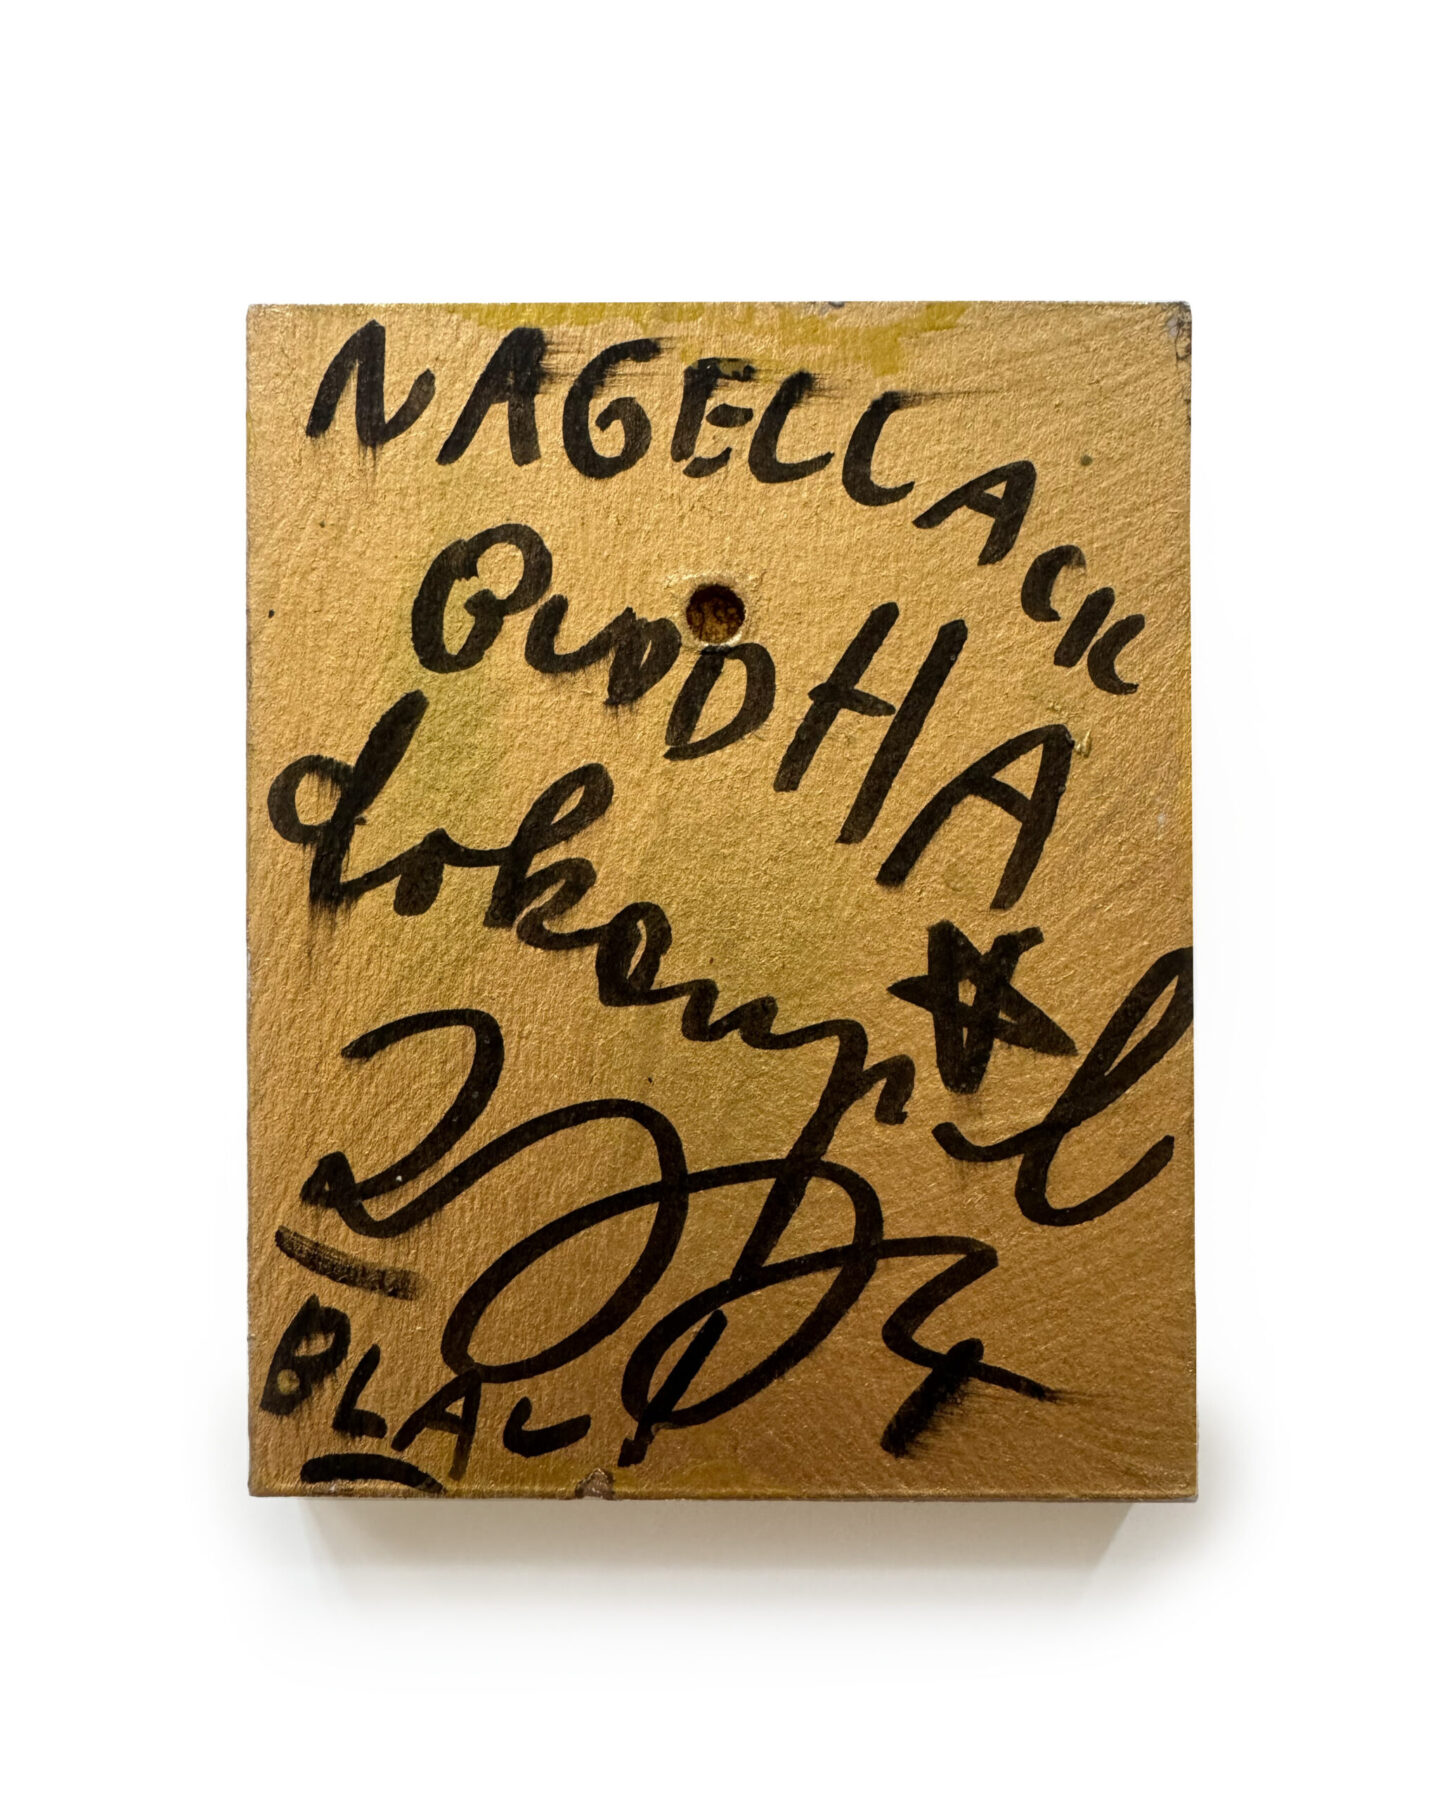 NAGELLACK
BUDDHA
dokoupil
2004
BLAU